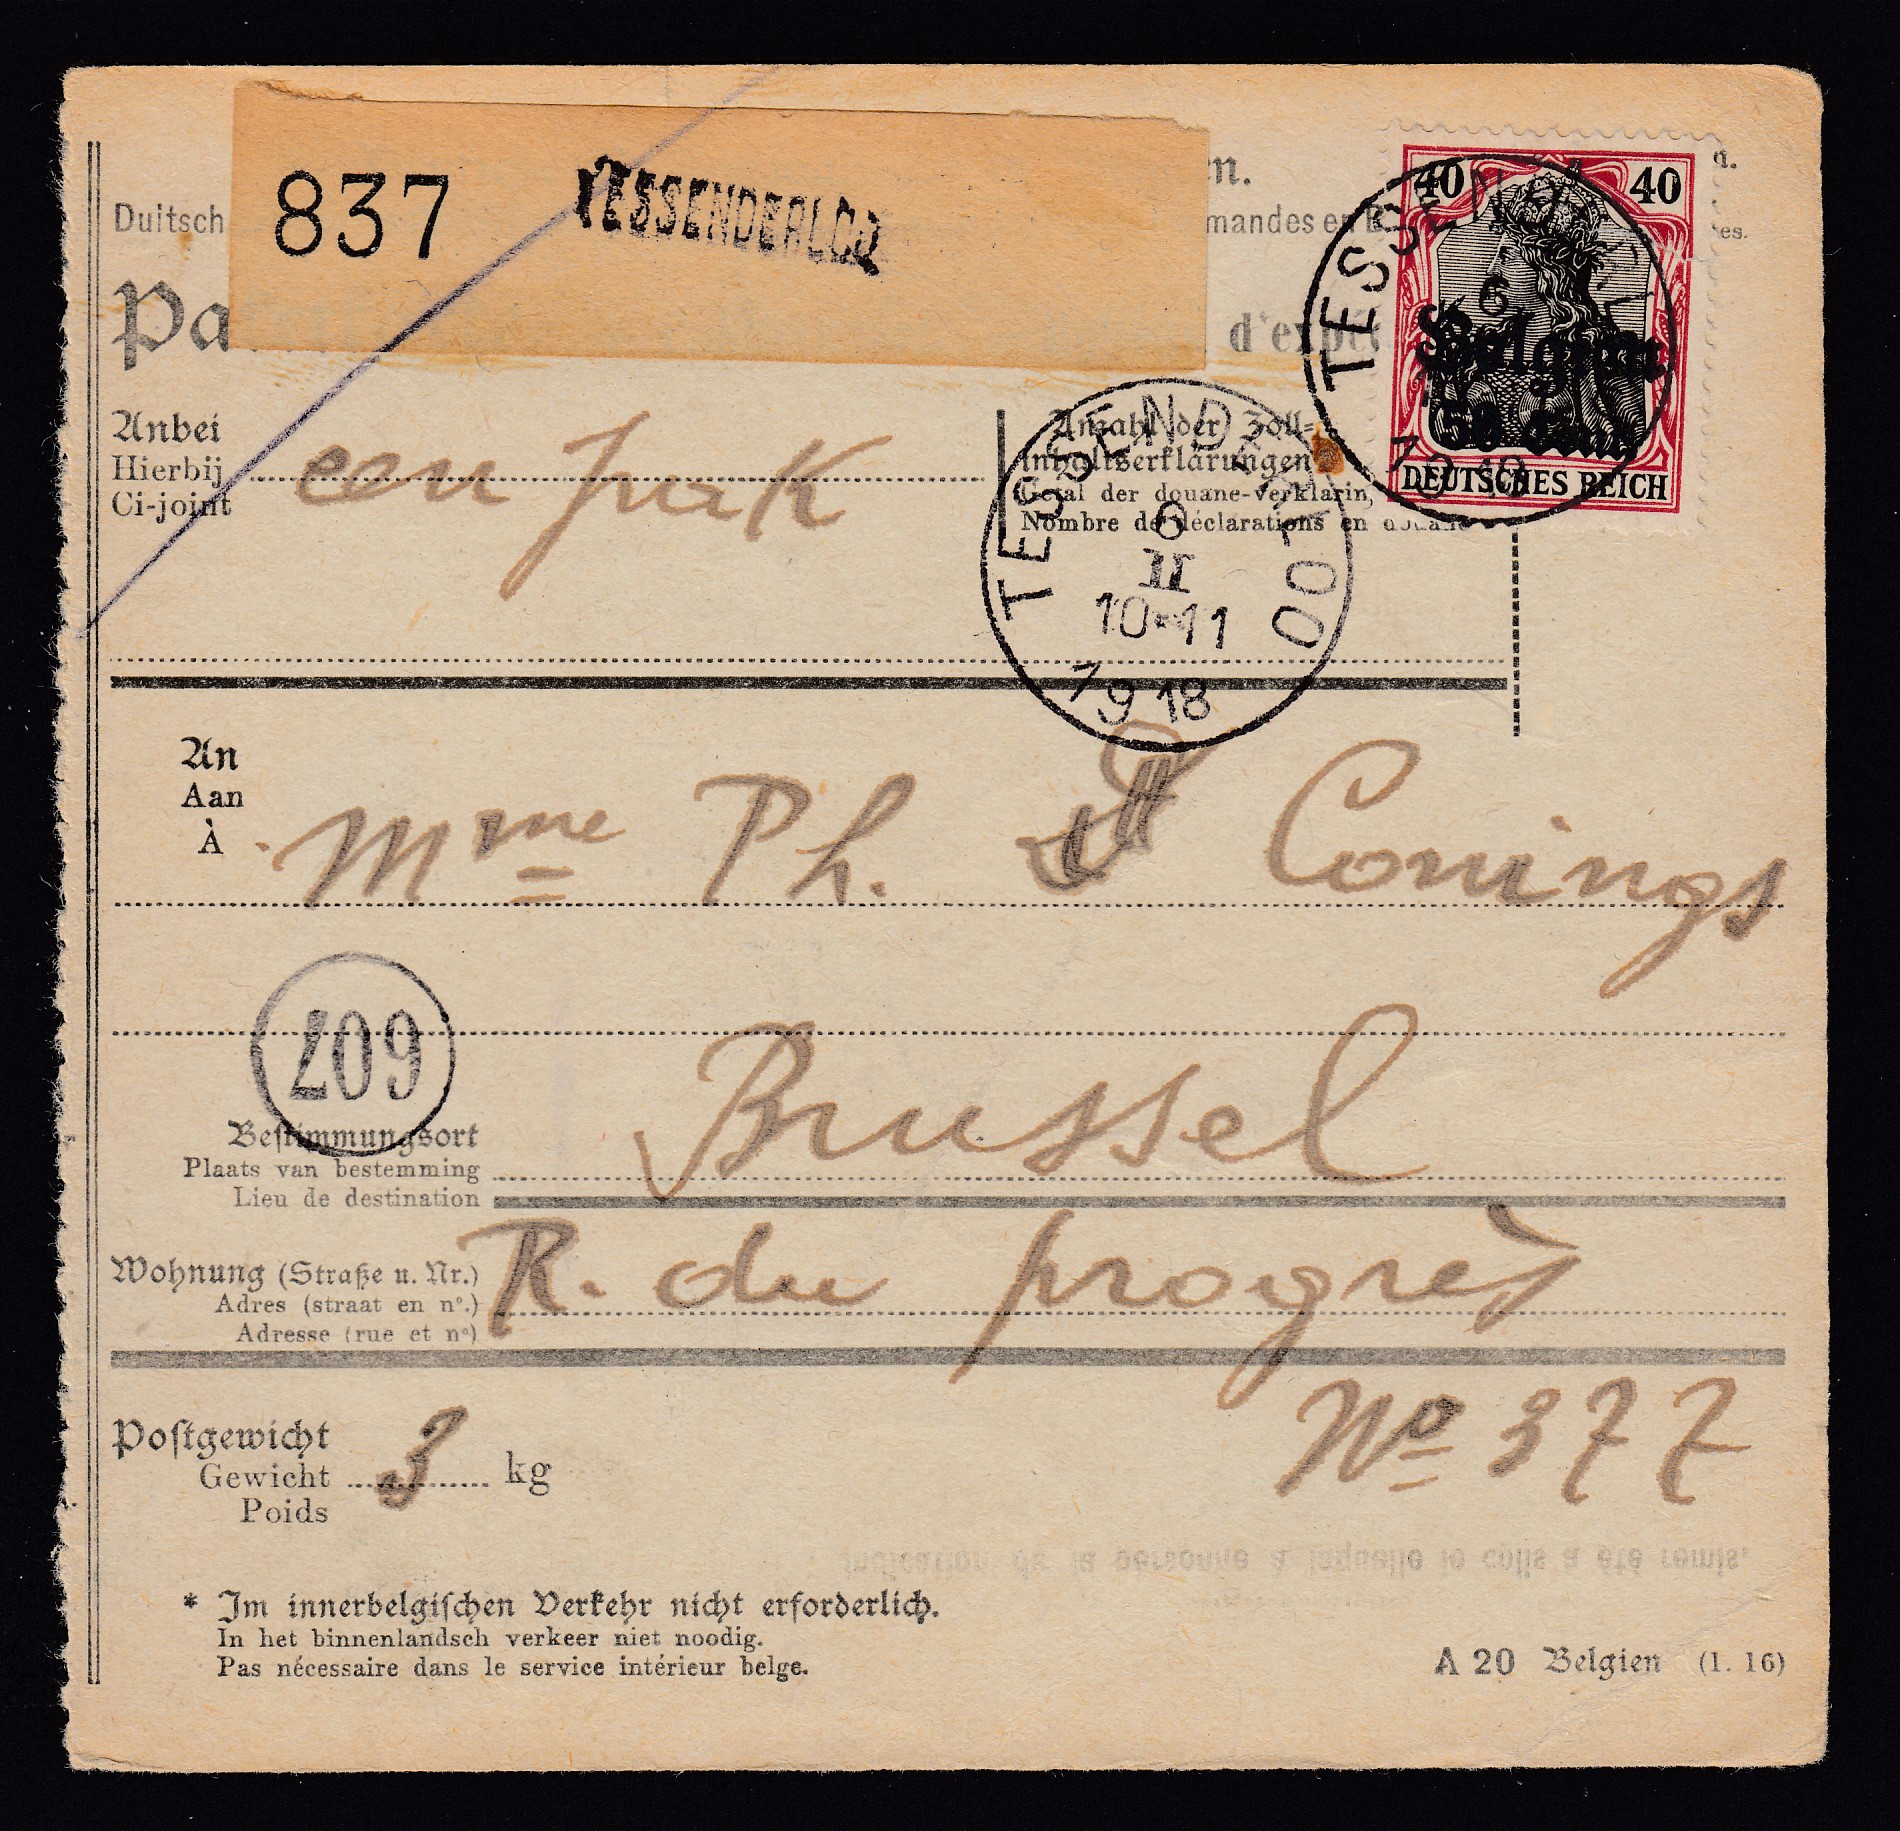 837 TESSENDERLOO
en.
Duitsch
mandes en B
es.
Pa
d'expé
40 40
Belgien
50 Cent.
DEUTSCHES REICH
TESSENDERLOO
1918
Anbei
Hierbij
Ci-joint
een pak
Anzahl der Zoll-
Inhaltserklärungen
Getal der douane-verklarin
Nombre de déclarations en douane
TESSENDERLOO
6
II
10-11
1918
An
Aan
À
Mme Ph. Conings
607
Bestimmungsort
Plaats van bestemming
Lieu de destination
Brussel
Wohnung (Straße u. Nr.)
Adres (straat en n°.)
Adresse (rue et n°)
R. du progrès
No 377
Postgewicht
Gewicht 3 kg
Poids
indication de la personne à laquelle le colis a été remis.
* Im innerbelgischen Verkehr nicht erforderlich.
In het binnenlandsch verkeer niet noodig.
Pas nécessaire dans le service intérieur belge.
A 20 Belgien (1. 16)